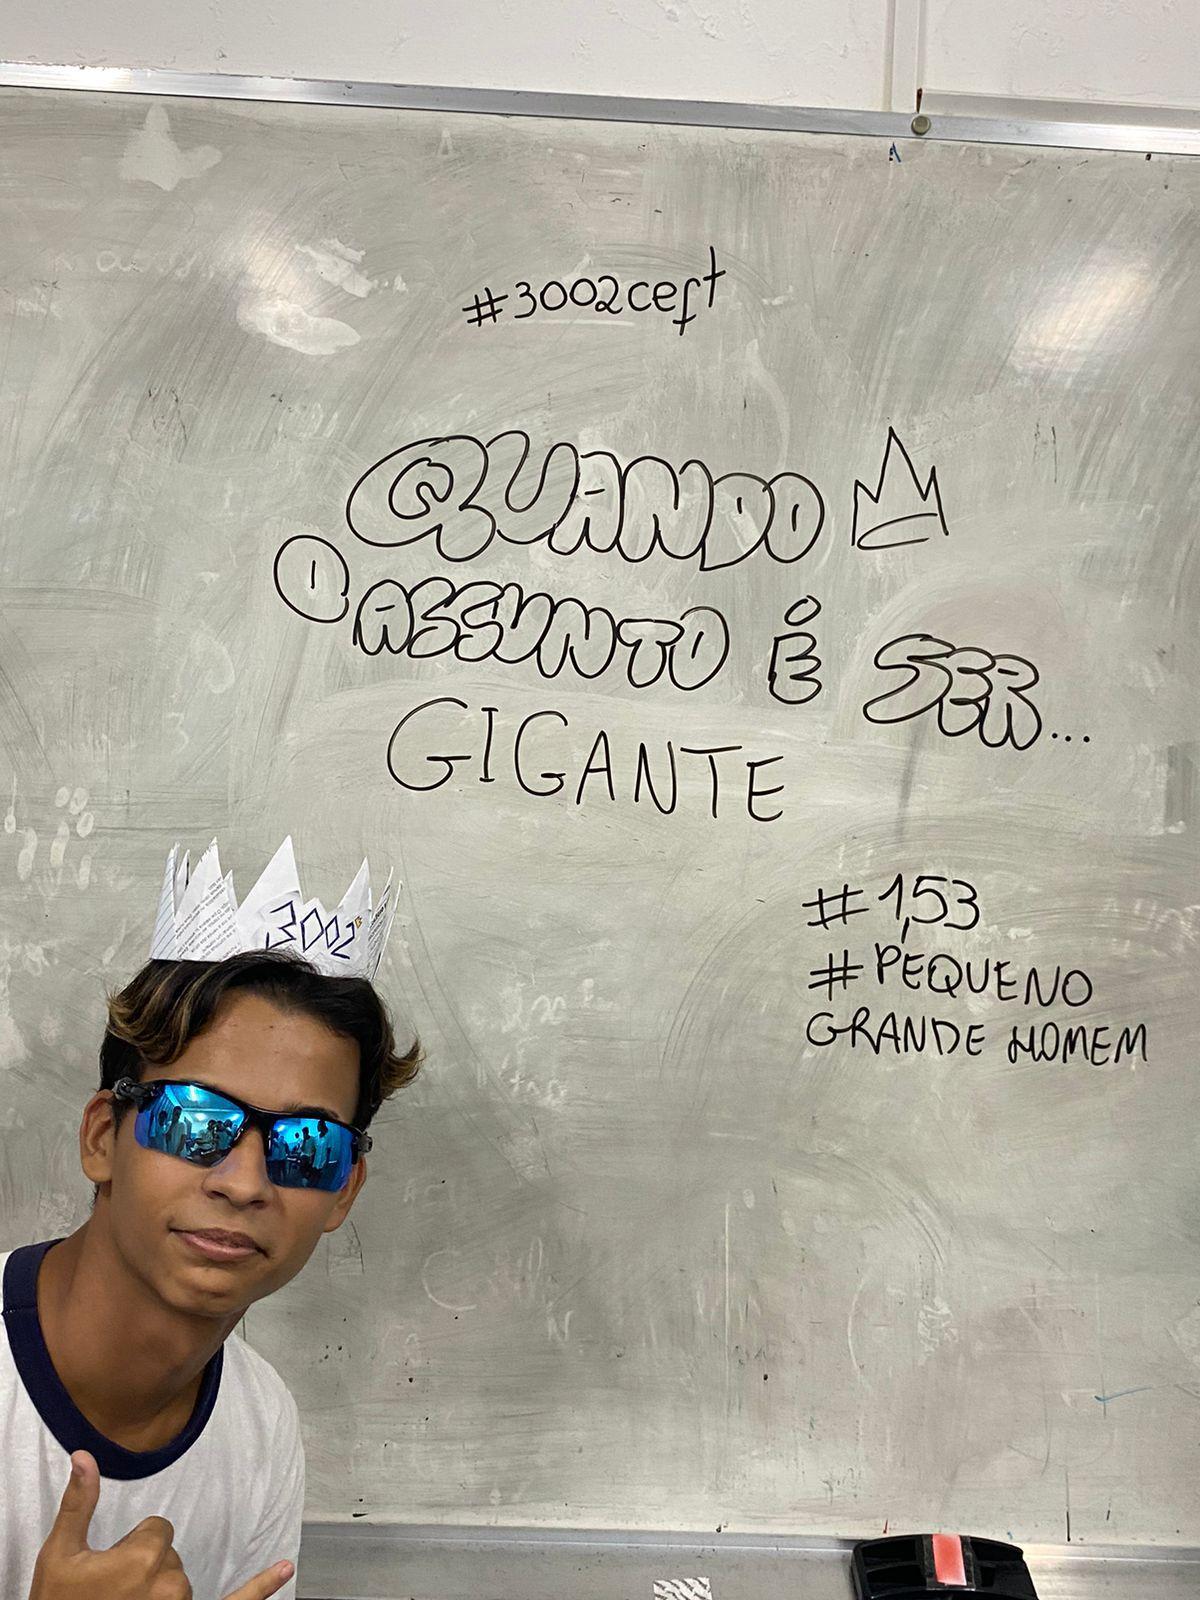 #3002ceft
QUANDO
O ASSUNTO É SER...
GIGANTE
3002
#1,53
#PEQUENO
GRANDE HOMEM